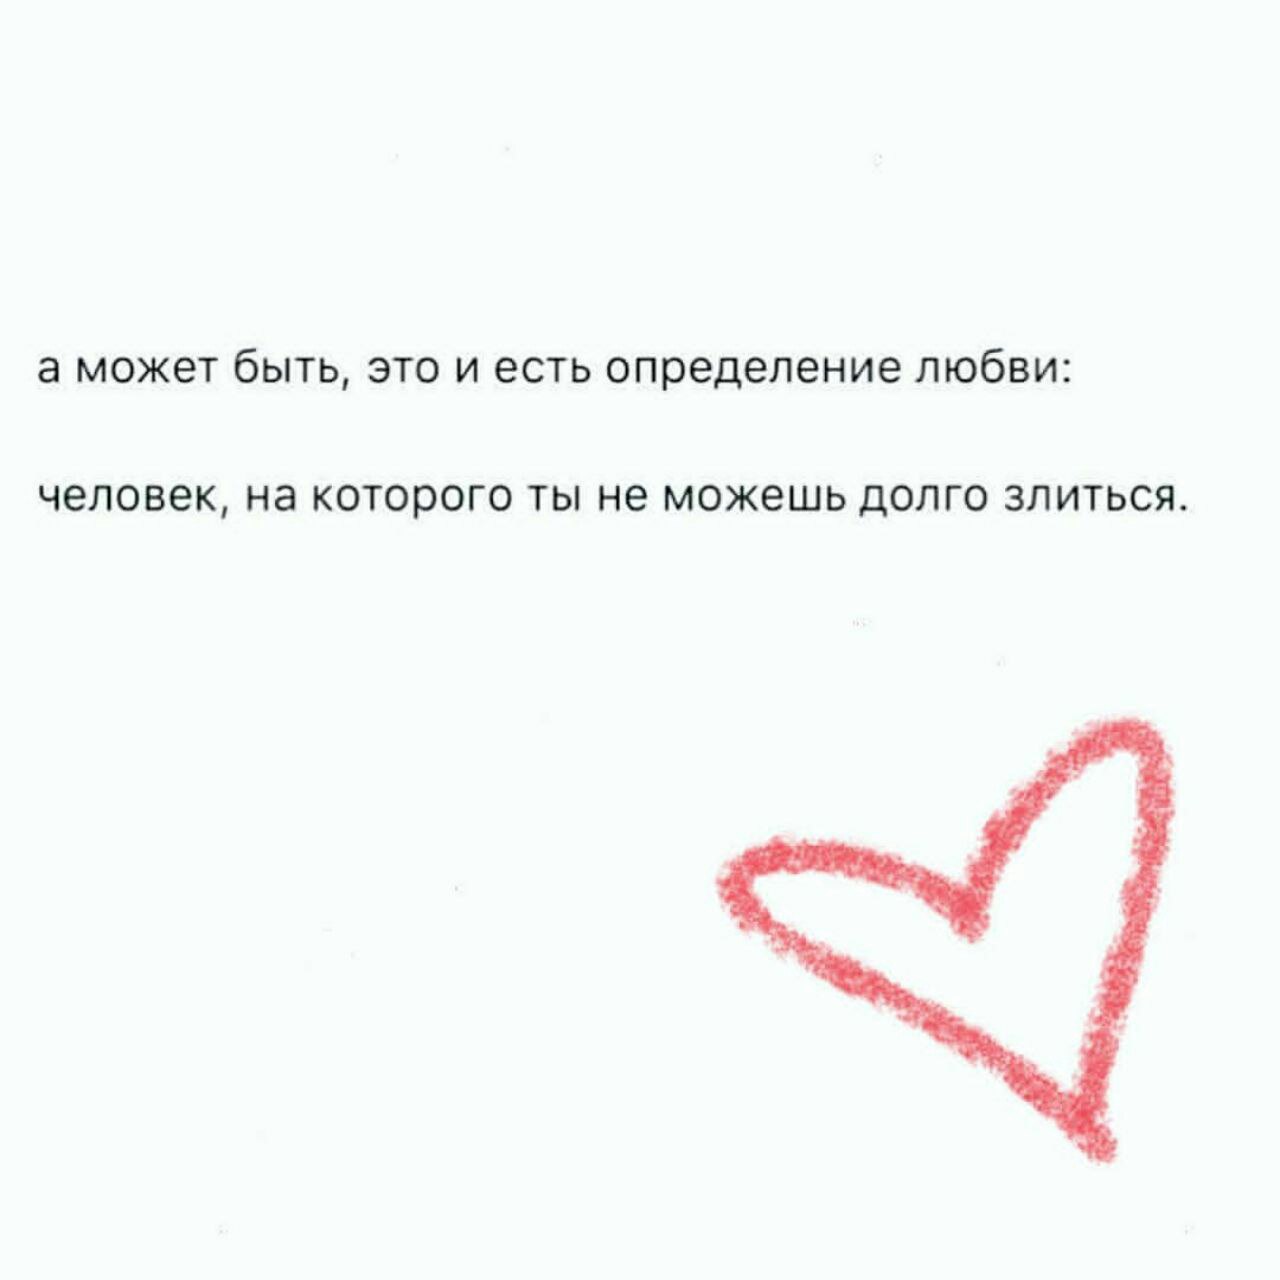 а может быть, это и есть определение любви:
человек, на которого ты не можешь долго злиться.